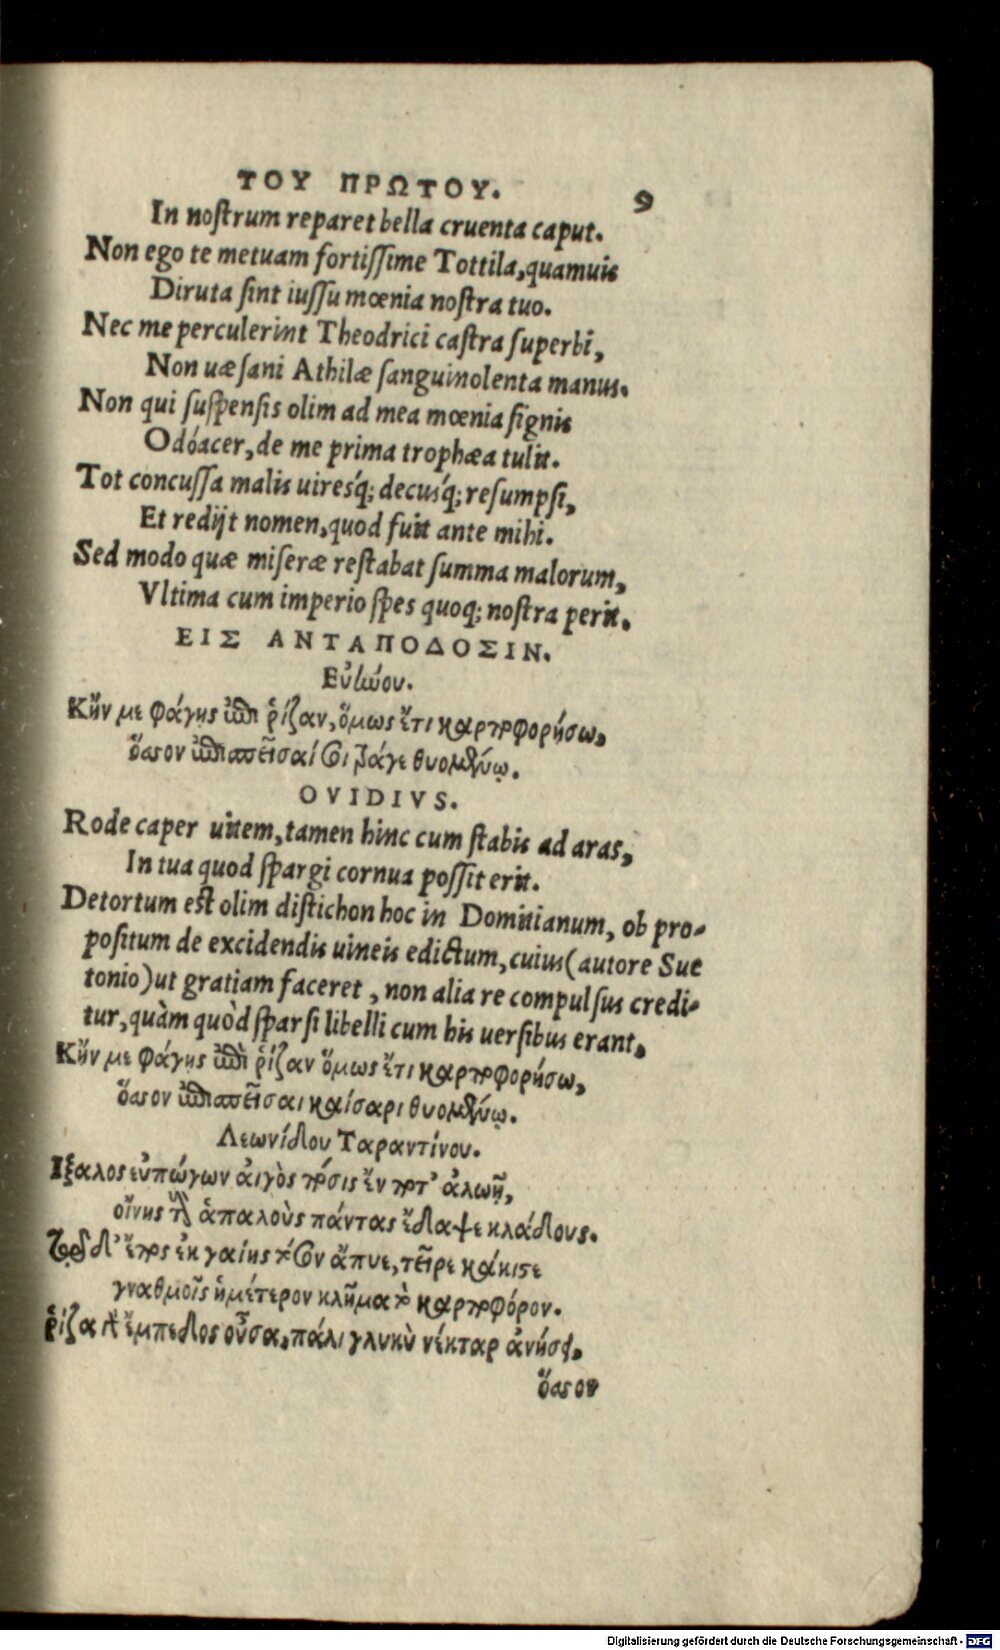 ΤΟΥ ΠΡΩΤΟΥ. 9
In nostrum reparet bella cruenta caput.
Non ego te metuam fortissime Tottila, quamuis
Diruta sint iussu mœnia nostra tuo.
Nec me perculerint Theodrici castra superbi,
Non uæsani Athilæ sanguinolenta manus.
Non qui suspensis olim ad mea mœnia signis
Odóacer, de me prima trophæa tulit.
Tot concussa malis uiresq́; decusq́; resumpsi,
Et redijt nomen, quod fuit ante mihi.
Sed modo quæ miseræ restabat summa malorum,
Vltima cum imperio spes quoq; nostra perit.
ΕΙΣ ΑΝΤΑΠΟΔΟΣΙΝ.
Εὐήνου.
Κἤν με φάγῃς ἐπὶ ῥίζαν, ὅμως ἔτι καρποφορήσω,
ὅσσον ἐπισπεῖσαί σοι τράγε θυομένῳ.
OVIDIVS.
Rode caper uitem, tamen hinc cum stabis ad aras,
In tua quod spargi cornua possit erit.
Detortum est olim distichon hoc in Domitianum, ob pro-
positum de excidendis uineis edictum, cuius (autore Sue
tonio) ut gratiam faceret, non alia re compulsus credi-
tur, quàm quòd sparsi libelli cum his uersibus erant,
Κἤν με φάγῃς ἐπὶ ῥίζαν ὅμως ἔτι καρποφορήσω,
ὅσσον ἐπισπεῖσαι καίσαρι θυομένῳ.
Λεωνίδου Ταραντίνου.
Ιξαλος εὐπώγων αἰγὸς πόσις ἔν ποτ' ἀλωῇ,
οἴνης τοὺς ἁπαλοὺς πάντας ἔδαψε κλάδους.
Τῷ δ' ἔπος ἐκ γαίης τόσον ἄπυε, κεῖρε κάκιστε
γναθμοῖς ἡμέτερον κλῆμα τὸ καρποφόρον.
ῥίζα γὰρ ἔμπεδος οὖσα, πάλι γλυκὺ νέκταρ ἀνήσει,
ὅσσον
Digitalisierung gefördert durch die Deutsche Forschungsgemeinschaft - DFG